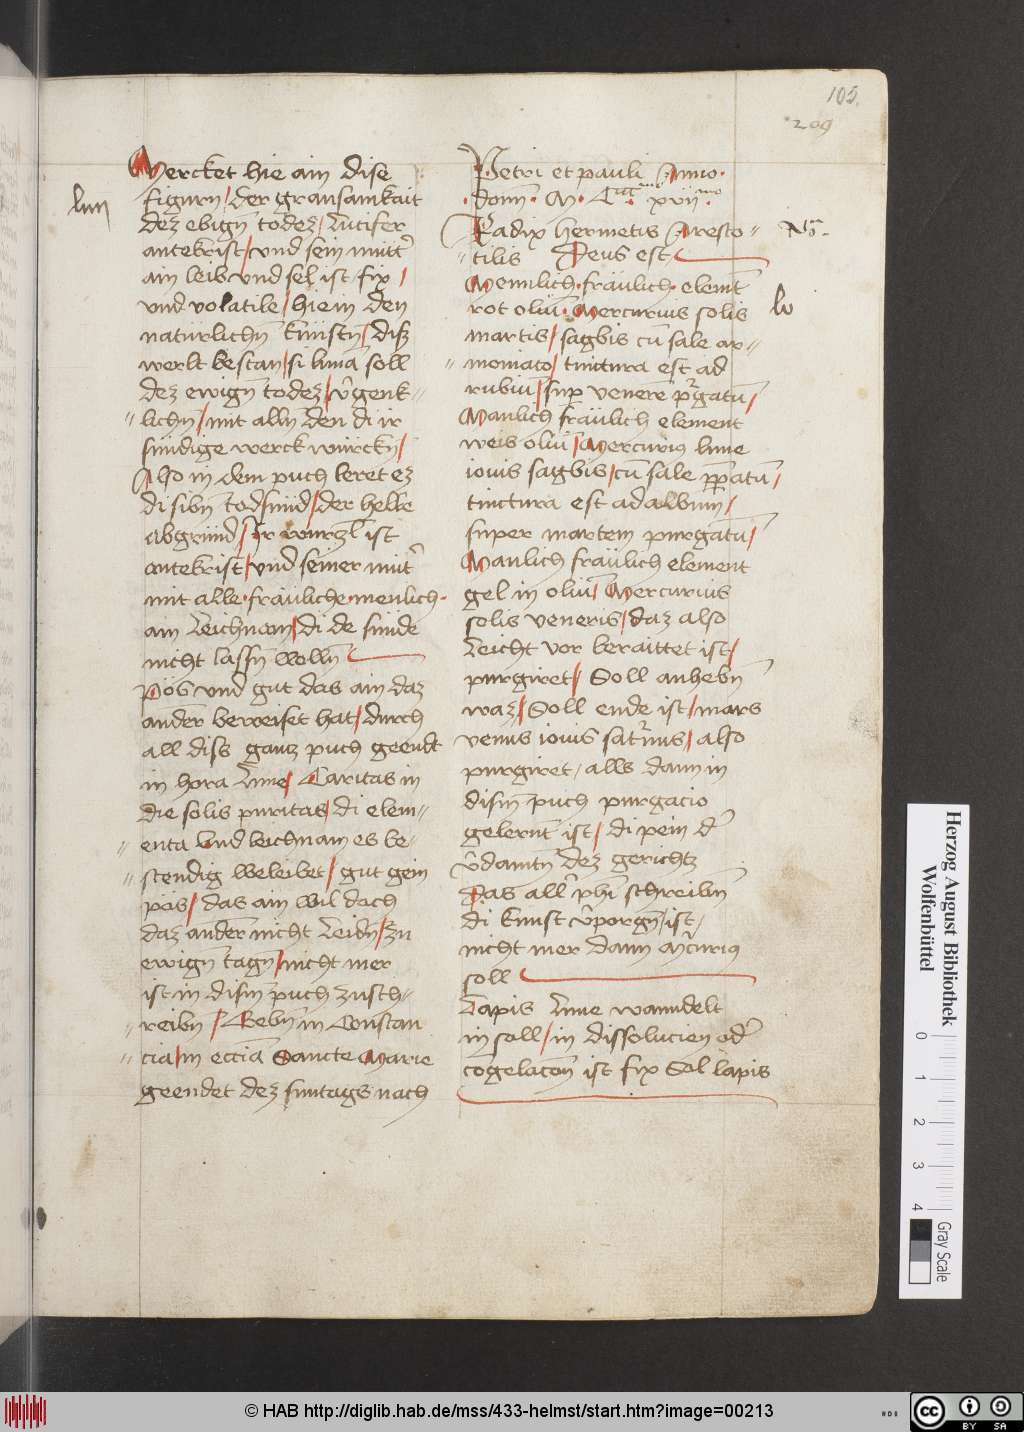 105.
209
Mercket hie ain dise
figurn / der gransamkait
dez ebign todez / Lucifer
antekrist / und sein mutt'
ain leib und sel ist / fix /
und volatile / hie in den
naturlichn kunstn / disz
werlt bestan / si luna soll
dez ewign todez / v'genk-
lichn / mit alln den di ir
sundige werck wurckn /
Also in dem puch leret ez
di sibn todsund / der helle
abgrund / Ir wurzl ist
antekrist / und seiner mut'
mit alle fräuliche menlich
ain Leichnam / di de sunde
nicht lassn wolln
Pös und gut das ain daz
ander beweiset hat / durch
all diss gantz puch geendt
in hora Lune / Caritas in
die solis puritas / di elem-
enta und leichnam es be-
stendig beleibet / gut gein
pös / das ain wil doch
daz andern nicht Leidn / zu
ewign tagn / nicht mer
ist in dism puch zusch-
reibn / Gebn in Constan
cia / in eccia Sancte Marie
geendet dez suntags nach
Petri et pauli Anno
domi M CCCC xvii
Radix hermetis Aresto-
tilis Deus est
Menlich fräulich elemt
rot oliu Mercurius solis
martis / sagbis cu sale ar-
moniaco / tinctura est ad
rubiu / sup venere p'gatu /
Manlich fräulich element
weis oliu / Mercurius lune
iouis sagbis / cu sale ppatu /
tinctura est ad album /
super martem purgatu /
Manlich fräulich element
gel in oliu / Mercurius
solis veneris / daz also
Leicht vor beraittet ist /
purgiret / Soll anhebn
waz / Soll ende ist / mars
venus iouis sat'nus / also
purgiret / alls dann in
dism puch purgacio
gelernt ist / di pein d'
v'damtn dez gerichtz
Das all' phi schreibn
di kunst v'porgn / ist /
nicht mer dann m'curius
soll
Lapis Lune wanndelt
in soll / in dissolucien od'
cogelacon ist fix Sol lapis
Herzog August Bibliothek
Wolfenbüttel
0 1 2 3 4
Gray Scale
© HAB http://diglib.hab.de/mss/433-helmst/start.htm?image=00213
cc BY SA